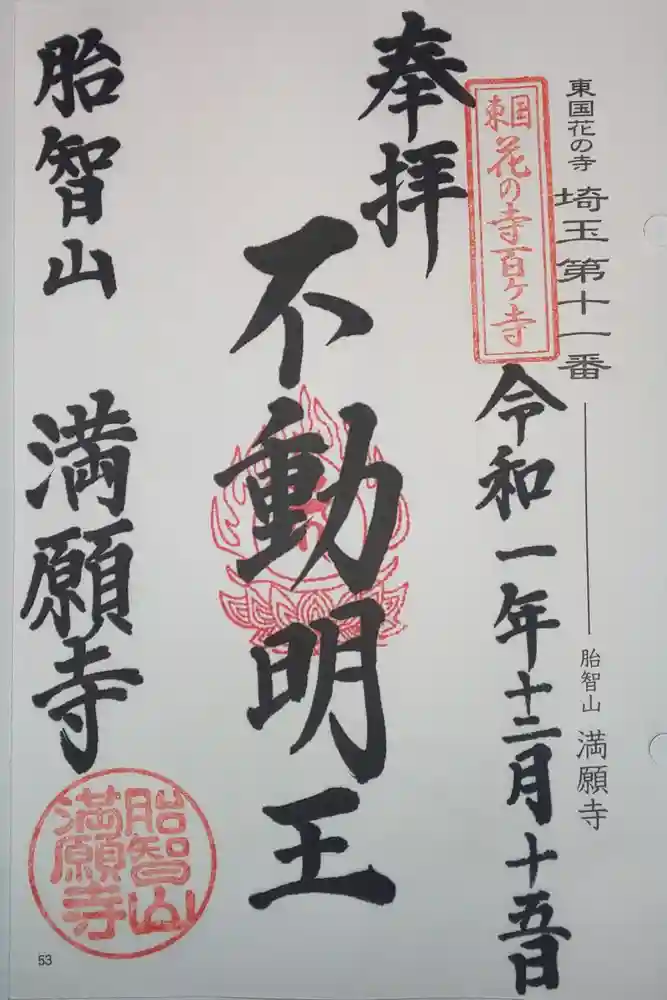 東国花の寺 埼玉第十一番 胎智山 満願寺
東国花の寺百ケ寺
奉拝
令和一年十二月十五日
不動明王
胎智山 満願寺
胎智山
満願寺
53